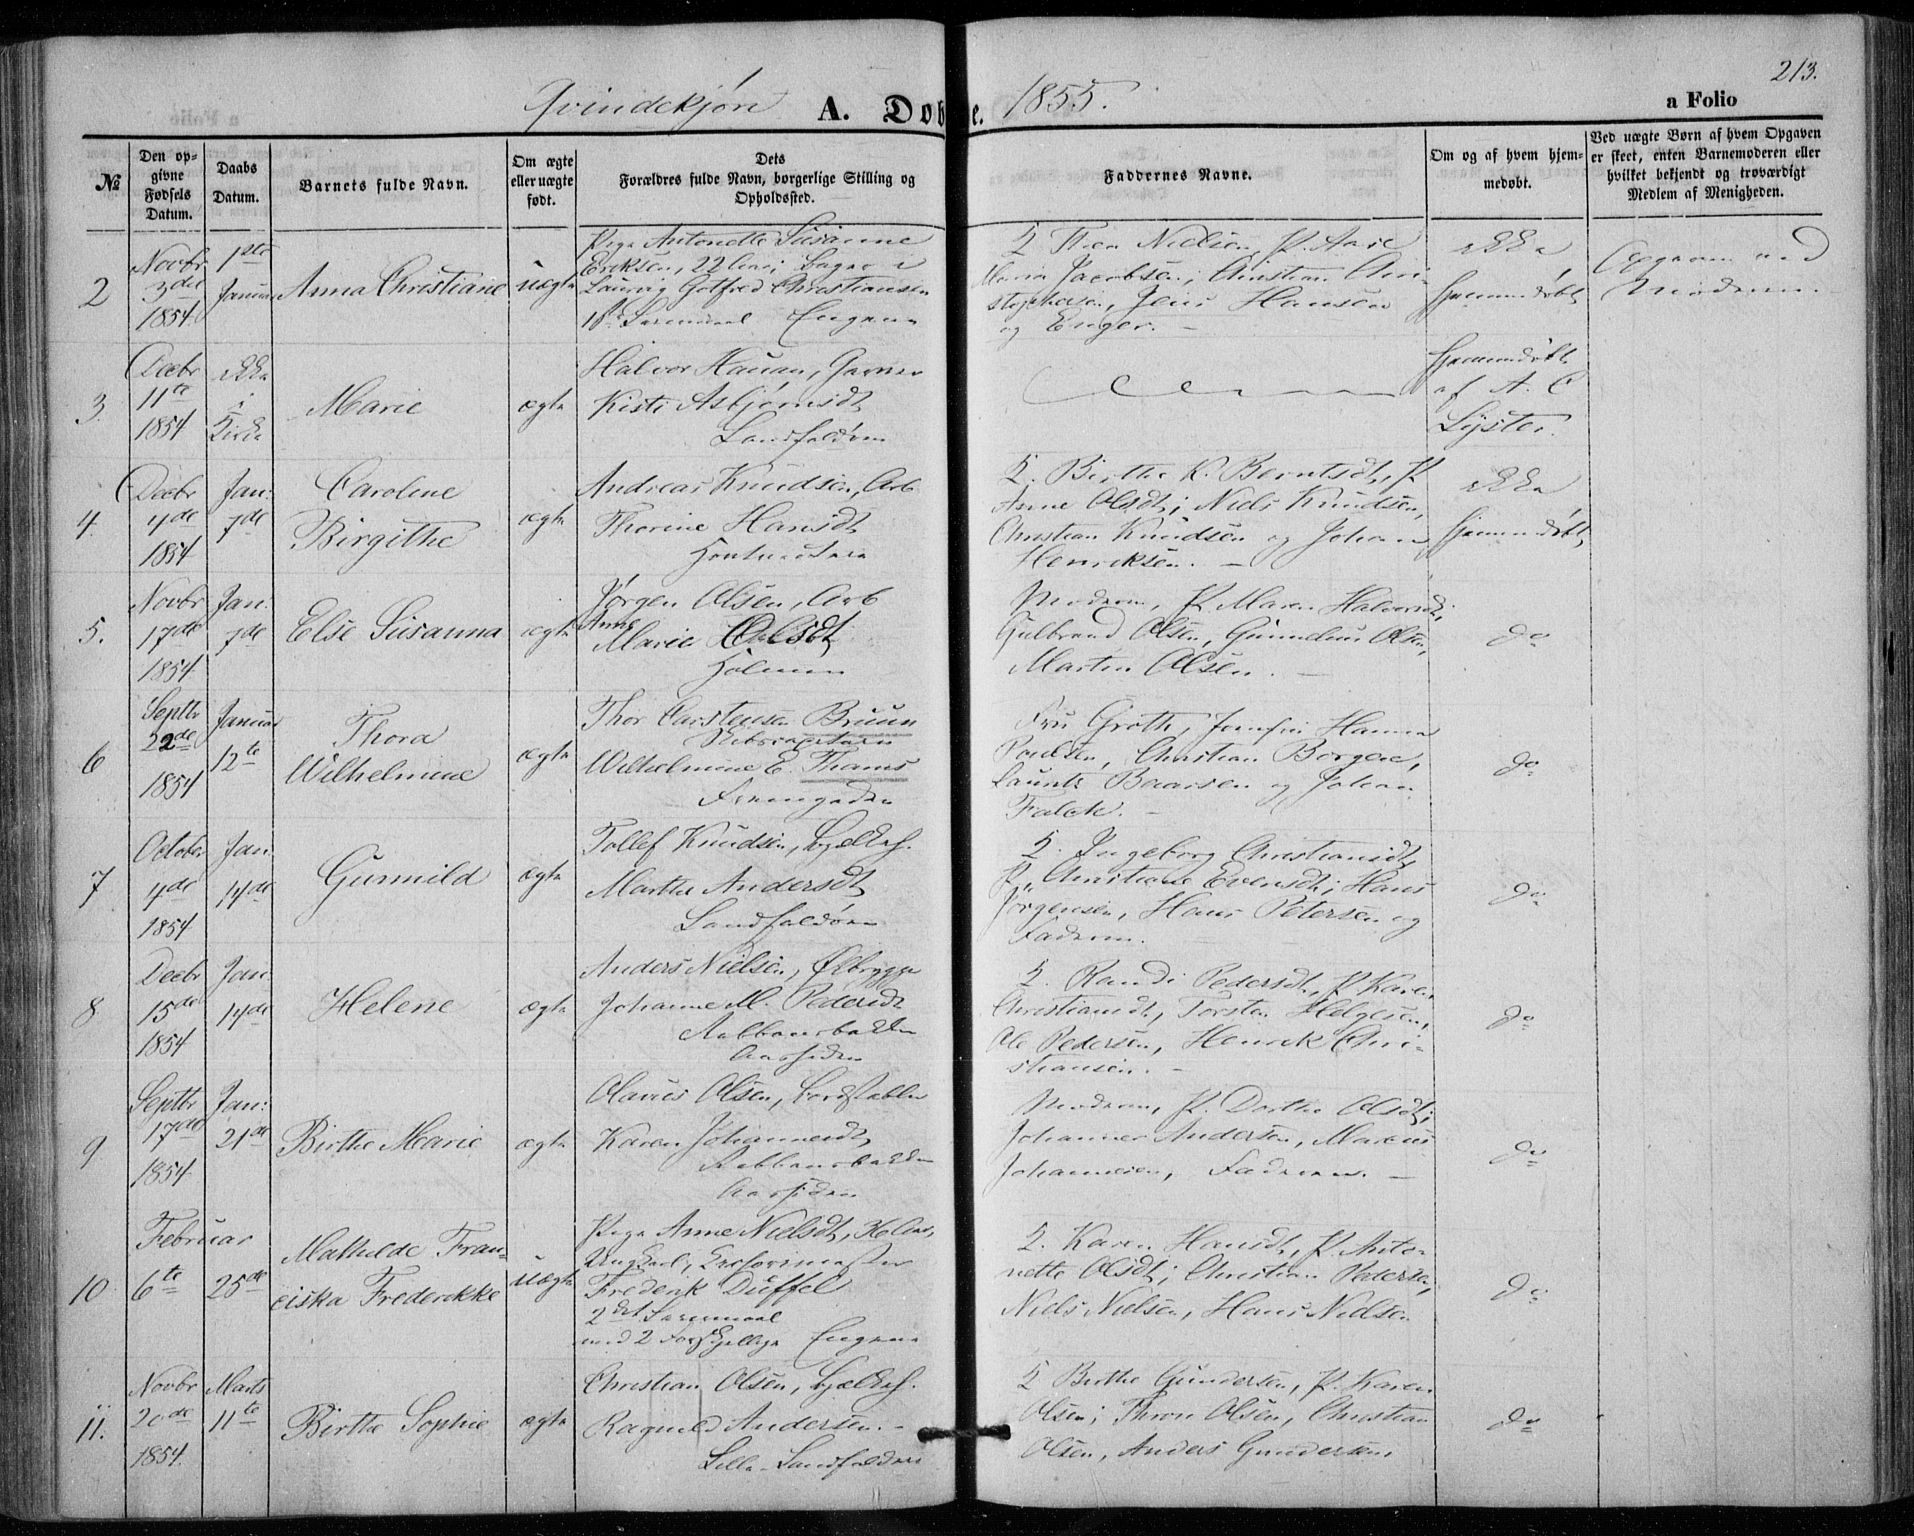 213.
Qvindekjøn A. Døbte. 1855.
a Folio
No
Den op-
givne
Fødsels
Datum.
Daabs
Datum.
Barnets fulde Navn.
Om ægte
eller uægte
født.
Dets
Forældres fulde Navn, borgerlige Stilling og
Opholdssted.
Faddernes Navne.
Om og af hvem hjem-
medøbt.
Ved uægte Børn af hvem Opgaven
er skeet, enten Barnemoderen eller
hvilket bekjendt og troværdigt
Medlem af Menigheden.
2
Novbr
3die
1854.
1ste
Januar
Anna Christiane
uægte
Pige Antonette Susanne
Eriksen, 22
Laurvig Gotfred Christiansen
Engene
Nielsen, P. Aase
Maria Jacobsen; Christian Chri-
stophersen, Jens Hansen
og Enger. —
ikke
hjemmedøbt
Opgaven ved
Moderen.
3.
Decbr
11te
1854
ikke
i
Kirke
Marie
ægte
Halvor Hauan, Garver
Kisti Asbjørnsdt
Landfaldøen
Hjemmedøbt
af A. C
Lyster.
4.
Decbr
4de
1854
Jan:
7de
Caroline
Birgithe
ægte
Andreas Knudsen, Arb
Thorine Hansdt
K. Birthe K. Berntsdt, P.
Anne Olsdt; Niels Knudsen,
Christian Knudsen og Johan
Henriksen. —
ikke
hjemmedøbt
5.
Novbr
17de
1854
Jan:
7de
Else Susanna
ægte
Jørgen Olsen, Arb
Anne
Marie Olsdt
Holmen
Moderen, P. Maren Halvorsdt,
Gulbrand Olsen, Gunnelius Olsen,
Martin Olsen. —
do
6
Septbr
22de
1854
Januar
12te
Thora
Wilhelmine
ægte
Thor Carstensen Bruun
Wilhelmine E. Thams
Fru Groth, Jomfru Hanna
Poulsen, Christian Borgen,
Launts og Johan
Falck. —
do
7
October
4de
1854
Jan
14de
Gunnild
ægte
Tollef Knudsen,
Marthe Andersdt
Landfaldøen
K. Ingeborg Christiansdt,
P. Christiane Evensdt; Hans
Jørgensen, Hans Petersen og
Faderen.
do
8
Decbr
15de
1854
Jan:
14de
Helene
ægte
Anders Nielsen, Ølbrygge
Johanne M. Pedersdt
K. Randi Pedersdt, P. Karen
Christiansdt, Torsten Helgesen,
Ole Pedersen, Henrik Chri-
stiansen. —
do
9
Septbr
17de
1854
Jan:
21de
Birthe Marie
ægte
Olaves Olsen, Bordstabler
Karen Johannesdt
Moderen, P. Dorthe Olsdt;
Johannes Andersen, Marius
Johannesen, Faderen. —
do
10
Februar
6te
25de
Mathilde Fran-
ciska Frederikke
uægte
Pige Anne Nielsdt,
Ungkarl,
Frederik Düffel
2det
med 2 Forskjellige Engene
K. Karen Hansdt, P. Anto-
nette Olsdt; Christian Pedersen,
Niels Nielsen, Hans Nielsen
do
11.
Novbr
20de
1854.
Marts
11te
Birthe Sophie
ægte
Christian Olsen,
Ragnild Andersen. —
Lille-Landfaldøen
K Birthe Gundersen, P. Karen
Olsen; Thron Olsen, Christian
Olsen, Anders Gundersen.
do